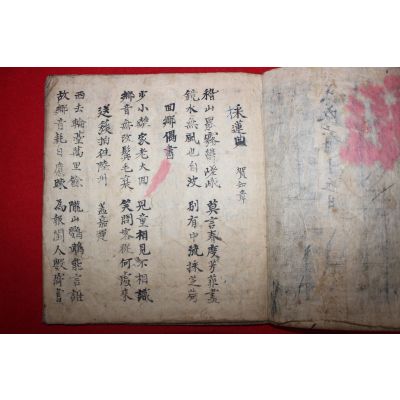 採蓮曲 賀知章
稽山罷霧鬱嵯峨 莫言春度芳菲盡
鏡水無風也自波 別有中流採芰荷
回鄉偶書
少小離家老大回 兒童相見不相識
鄉音無改鬢毛衰 笑問客從何處來
簇拍陸州 盖嘉運
西去輪臺萬里餘 隴山鸚鵡能言語
故鄉音耗日應疎 為報閨人數寄書